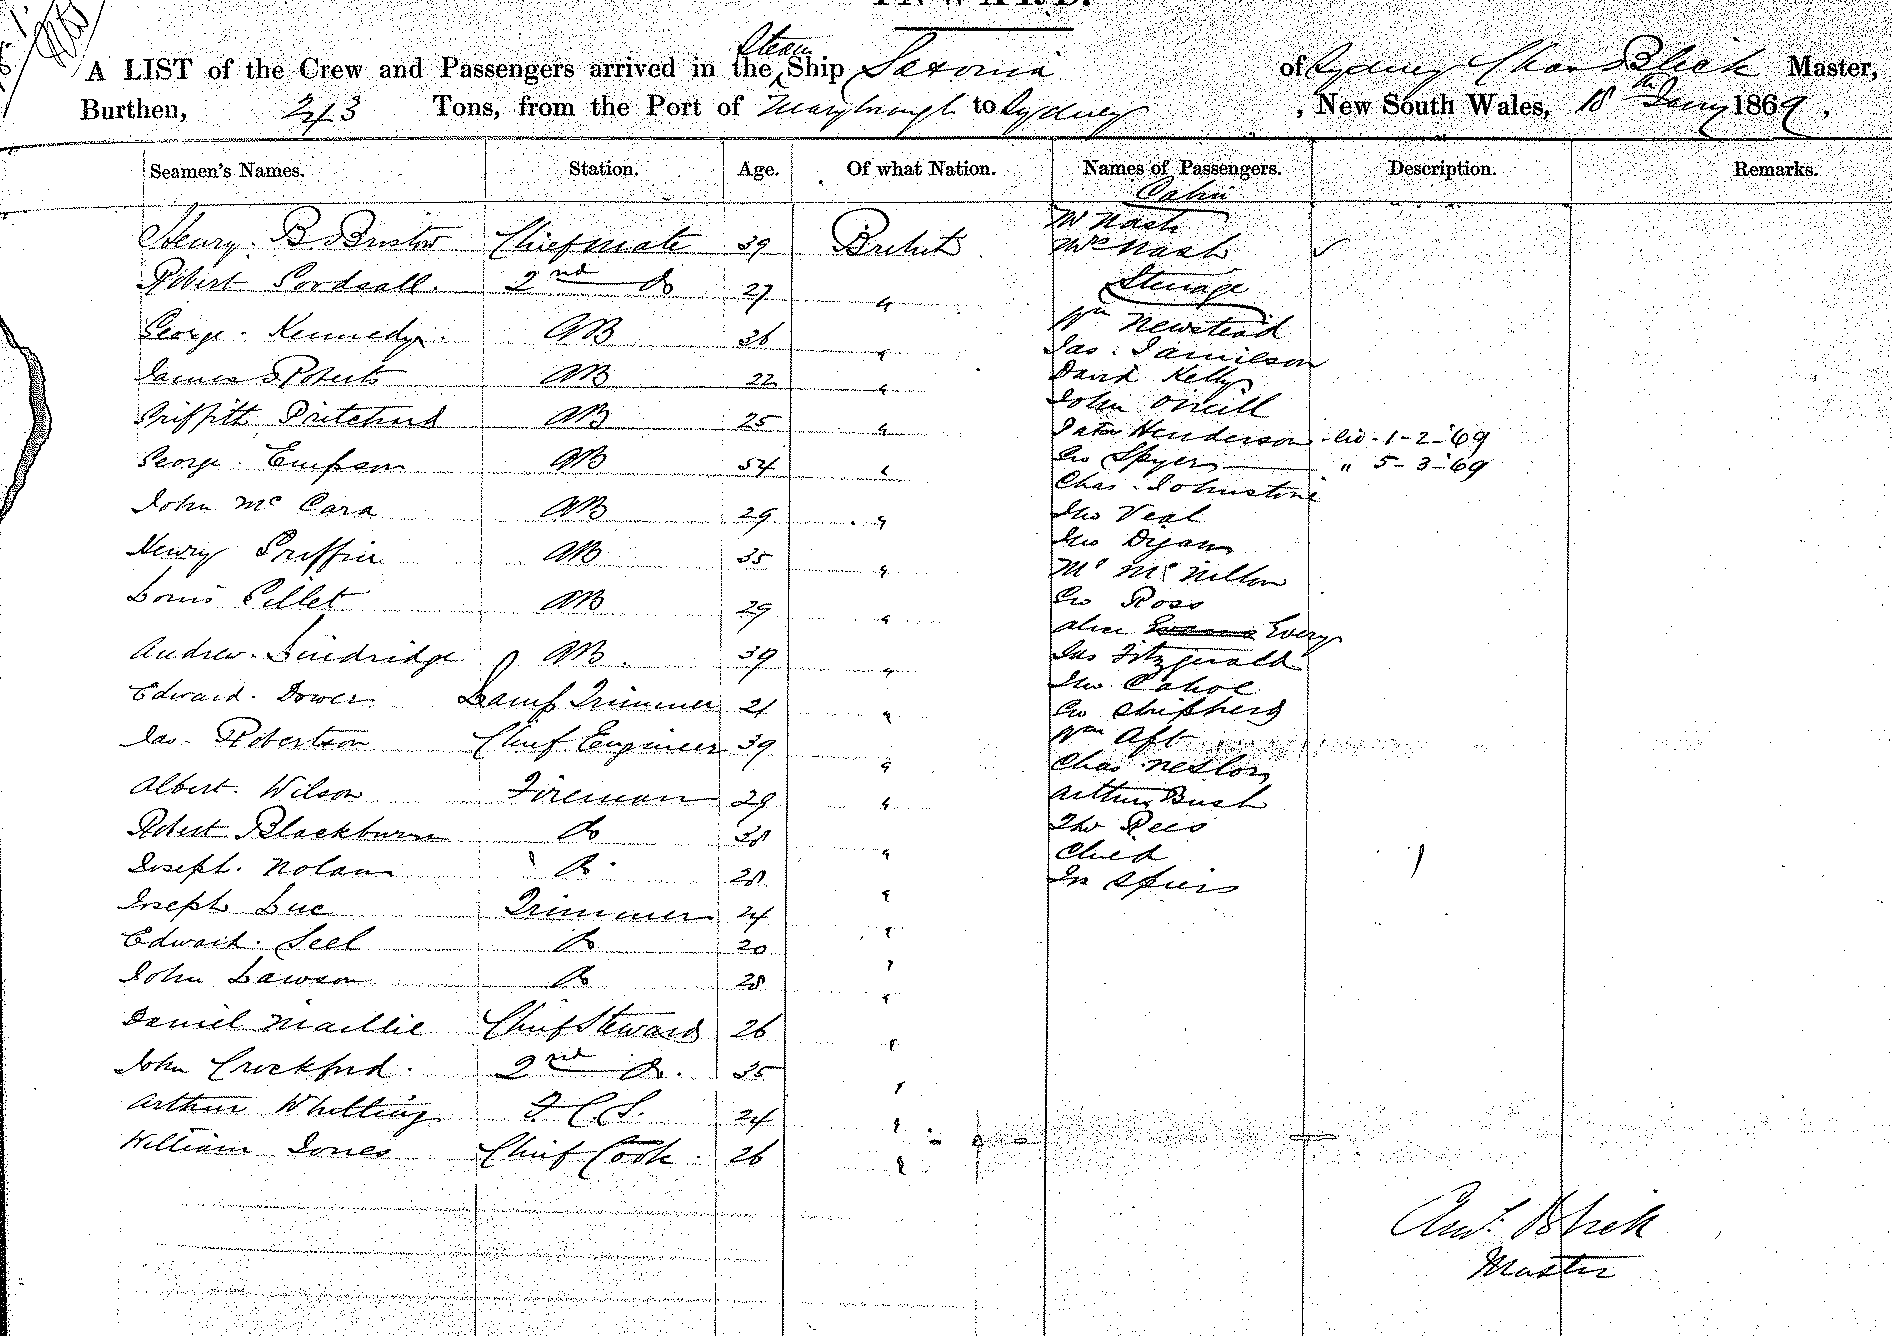 INWARD.
A LIST of the Crew and Passengers arrived in the Steam Ship Saxonia of Sydney Chas Blick Master,
Burthen, 243 Tons, from the Port of Maryborough to Sydney, New South Wales, 18th Jany 1869.
Seamen's Names. Station. Age. Of what Nation. Names of Passengers. Description. Remarks.
Cabin
Mr Nash
Henry B Bristow Chief mate 39 British Mrs Nash ✓
Robert Sordsall 2nd Do 27 " Steerage
Wm Newstead
George Kennedy AB 36 "
Jas. Jamieson
James Roberts AB 22 " David Kelly
John Oneill
Griffith Pritchard AB 25 "
Henderson 1-2-69
George Empson AB 54 " Geo Spyers " 5-3-69
Chas. Johnstone
John Mc Cara AB 29 " Jno Veal
Jno
Henry Griffin AB 35 "
Mr Mc
Louis Pillet AB 29 " Geo Ross
Every
Andrew AB 39 " Jas Fitzgerald
Jno
Edward Dower Lamp Trimmer 21 " Geo Shepherd
Jas. Robertson Chief Engineer 39 " Wm Aft
Chas
Albert Wilson Fireman 29 " Arthur Bush
Robert Blackburn Do 38 " Rees
Child 1
Joseph Nolan Do 28 "
Spiers
Joseph Luc Trimmer 24 "
Edward Seel Do 20 "
John Lawson Do 28 "
Daniel Maillie Chief Steward 26 "
John Crockford 2nd Do. 35 "
Arthur Whitting F.C.S. 24 "
William Jones Chief Cook 26 "
Blick
Master